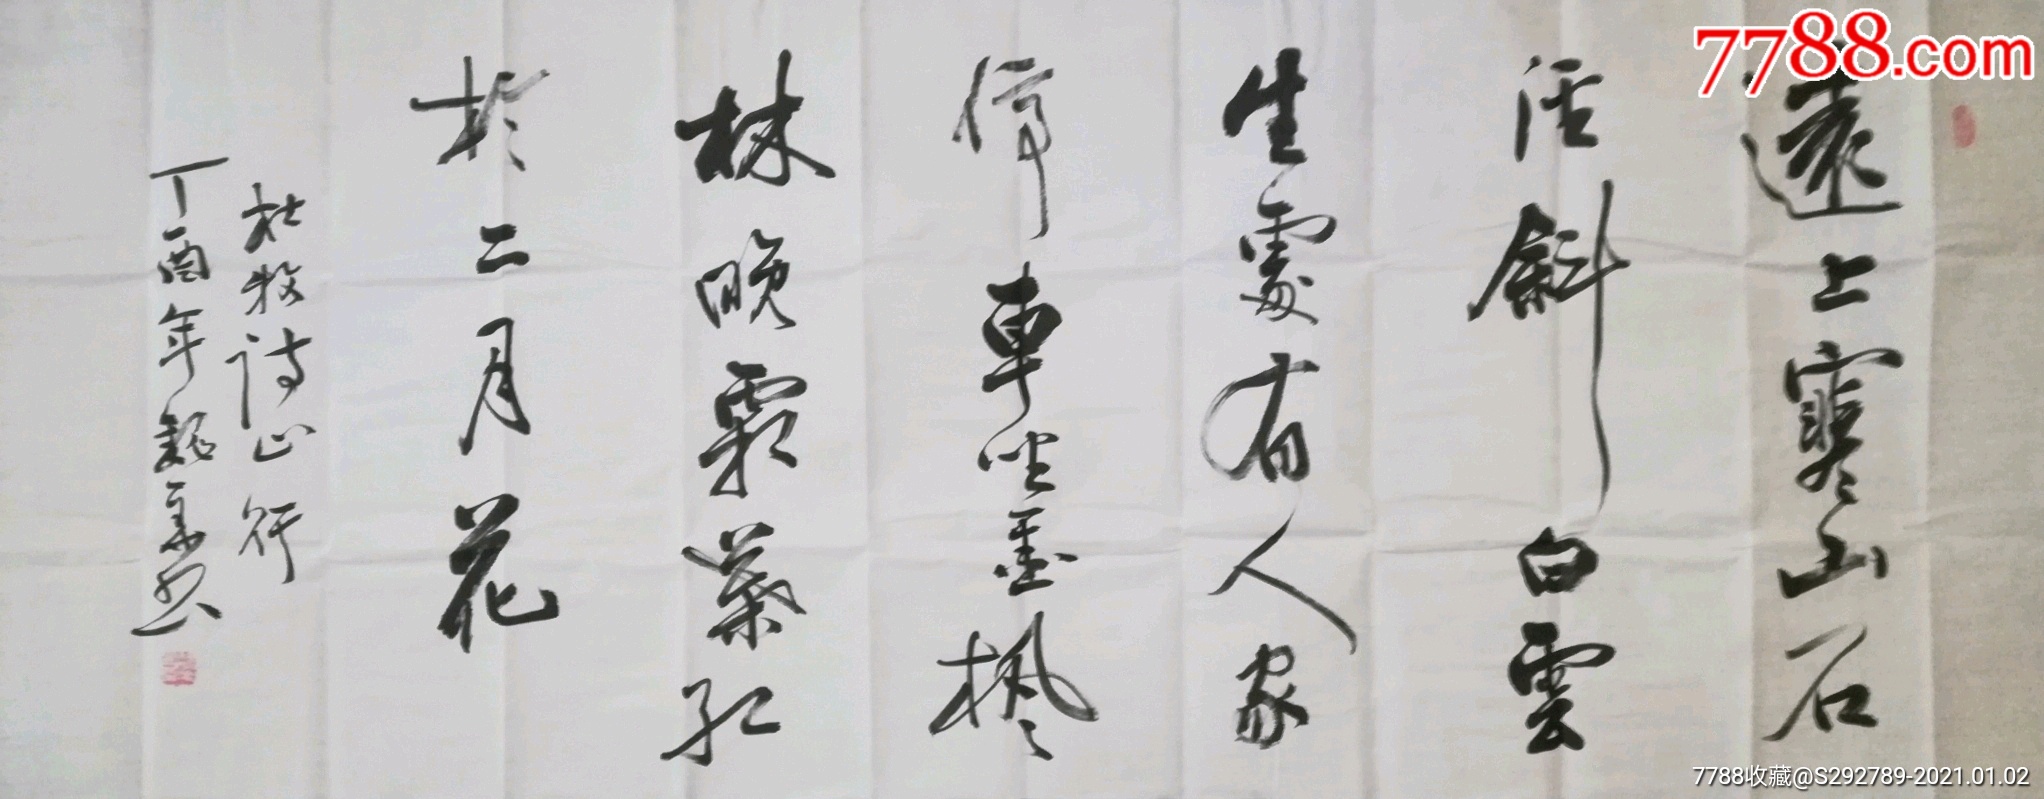 7788.com
遠上寒山石
径斜白雲
生處有人家
停車坐愛楓
林晚霜葉紅
於二月花
杜牧詩山行
丁酉年
7788收藏@S292789-2021.01.02